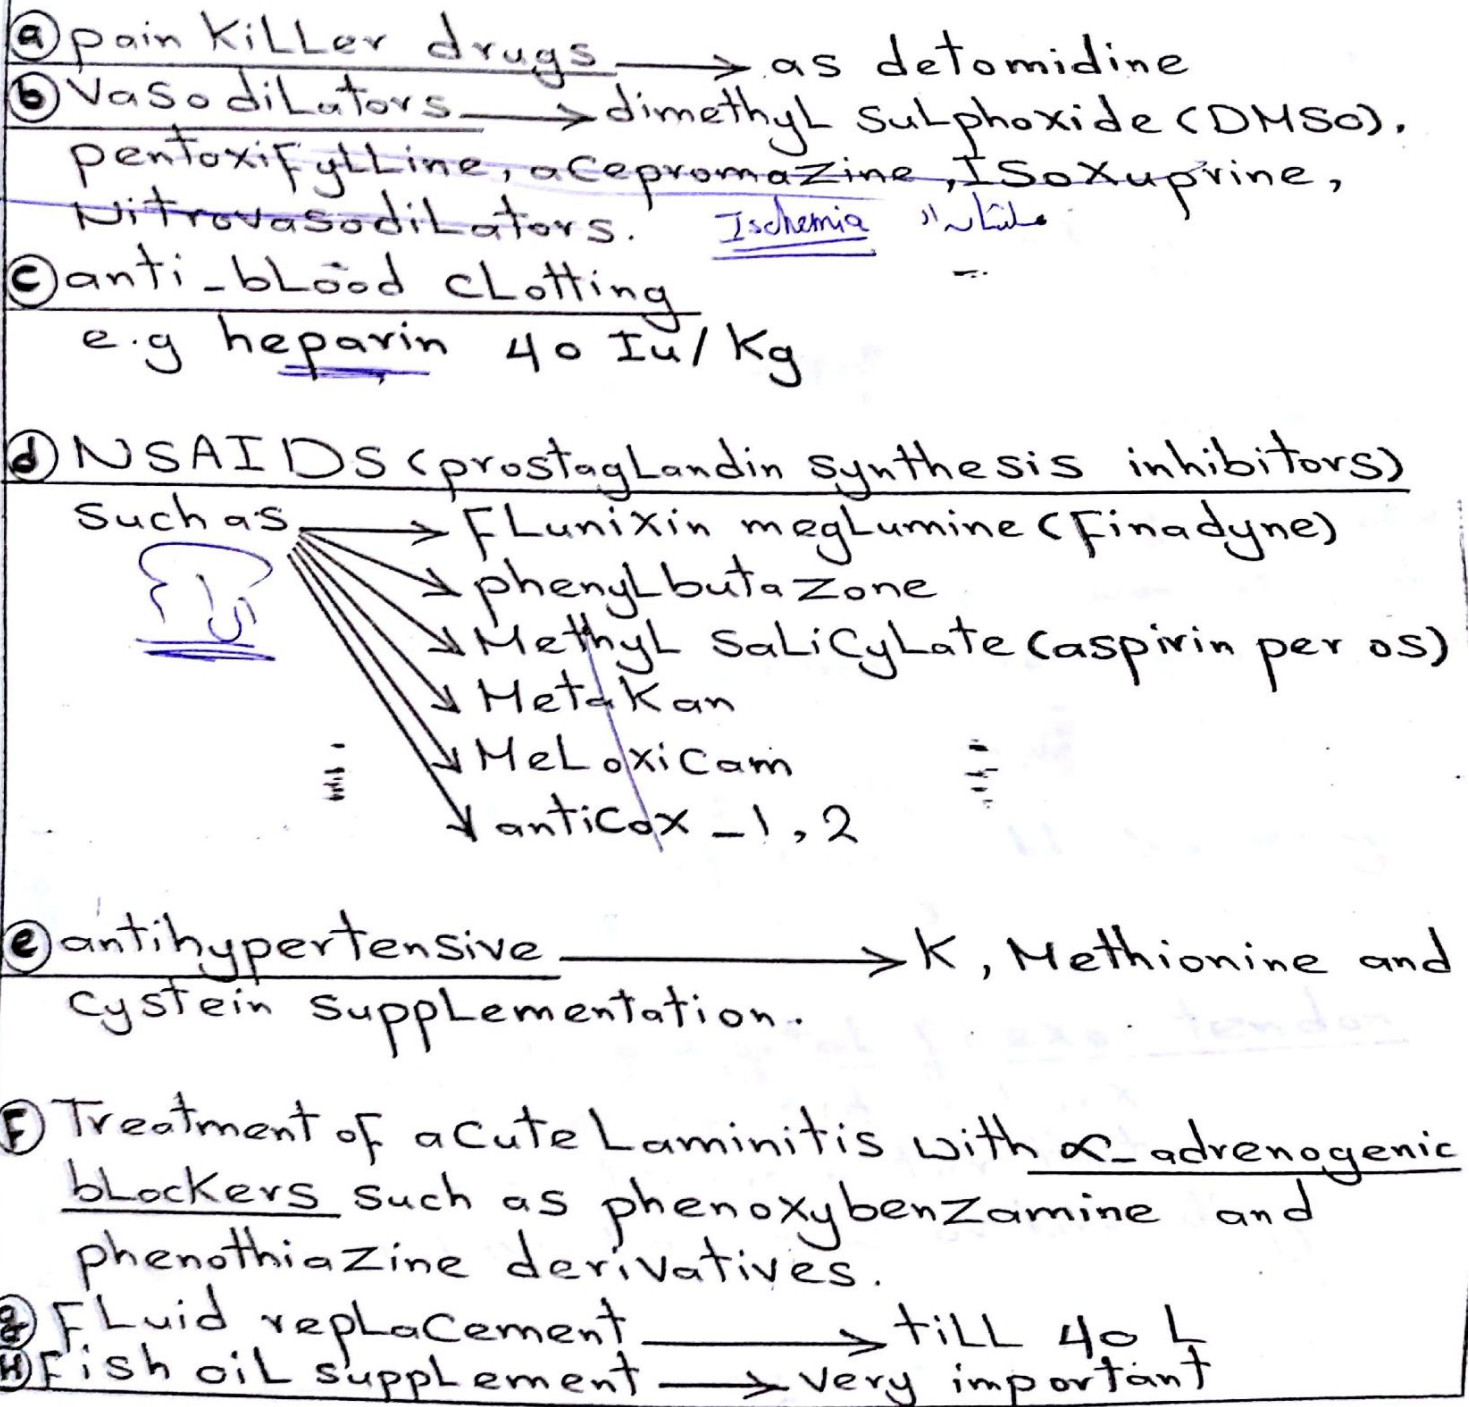 ⓐ pain killer drugs → as detomidine
ⓑ Vasodilators → dimethyl sulphoxide (DMSO),
pentoxifylline, acepromazine, Isoxuprine,
Nitrovasodilators. Ischemia
ⓒ anti-blood clotting
e.g heparin 40 Iu/Kg
ⓓ NSAIDS (prostaglandin synthesis inhibitors)
Such as → Flunixin meglumine (Finadyne)
phenylbutazone
Methyl salicylate (aspirin per os)
Metakan
Meloxicam
anticox-1,2
ⓔ antihypertensive → K, Methionine and
cystein supplementation.
Ⓕ Treatment of acute Laminitis with α-adrenogenic
blockers such as phenoxybenzamine and
phenothiazine derivatives.
ⓖ Fluid replacement → till 40 L
Ⓗ Fish oil supplement → very important